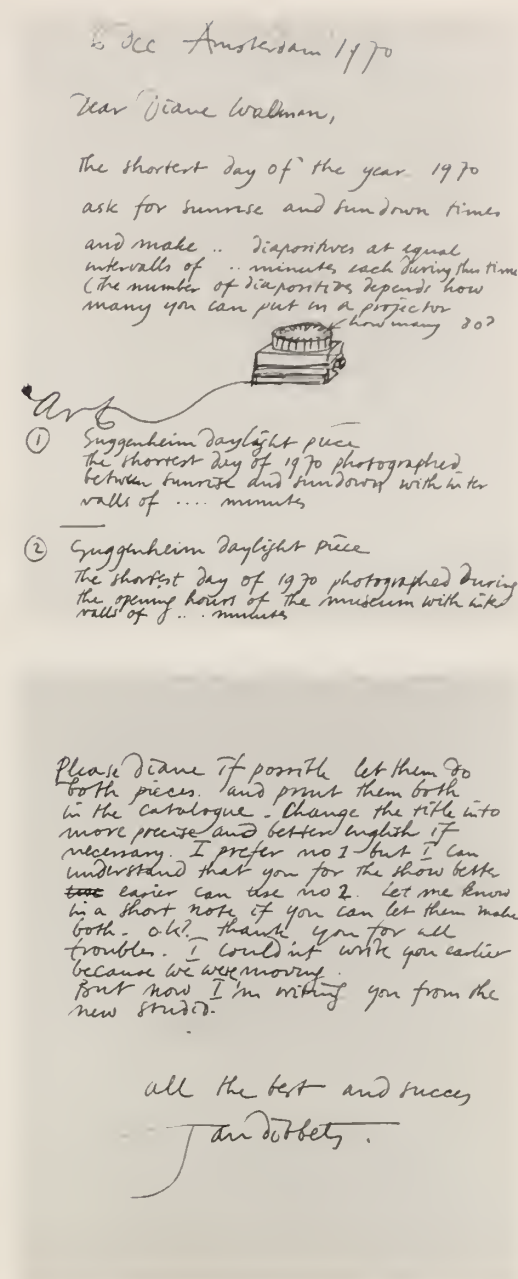 6 Dec Amsterdam 1970
Dear Diane Waldman,
the shortest day of the year 1970
ask for sunrise and sundown times
and make .. diapositives at equal
intervalls of .. minutes each during this time
(the number of diapositives depends how
many you can put in a projector
how many 80?
Art
① Guggenheim daylight piece
the shortest day of 1970 photographed
between sunrise and sundown with inter
valls of .... minutes
② Guggenheim daylight piece
the shortest day of 1970 photographed during
the opening hours of the museum with inter
valls of .. . minutes
Please Diane if possible let them do
both pieces. and print them both
in the catalogue. Change the title into
more precise and better english if
necessary. I prefer no 1 but I can
understand that you for the show better
earier can use no 2. Let me know
in a short note if you can let them make
both. ok? thank you for all
troubles. I couldn't write you earlier
because we were moving.
But now I'm writing you from the
new studio.
all the best and succes
Jan dibbets.